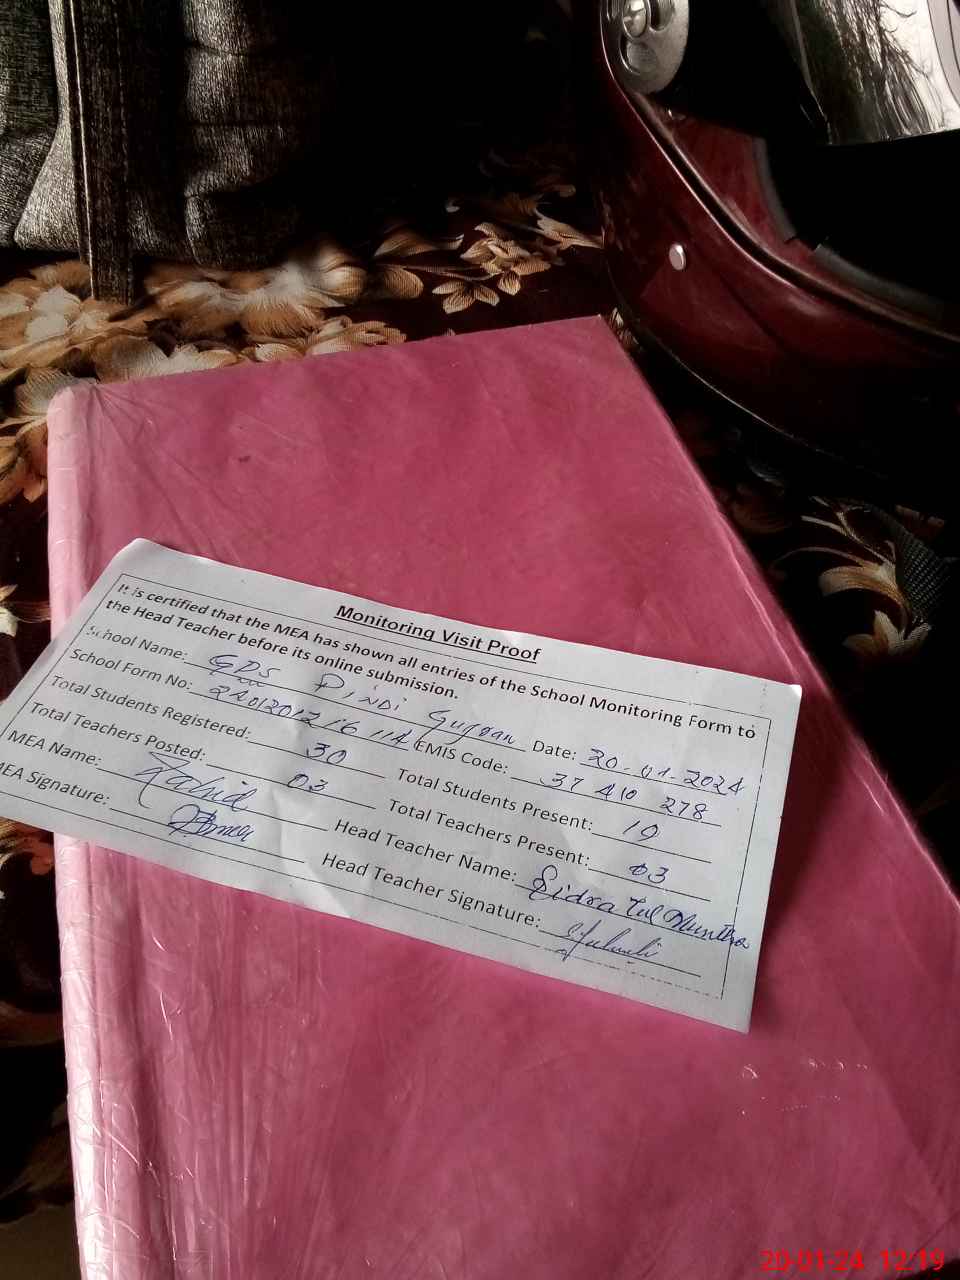 Monitoring Visit Proof
It is certified that the MEA has shown all entries of the School Monitoring Form to
the Head Teacher before its online submission.
School Name: GPS Pindi Gujran Date: 20-01-2024
School Form No: EMIS Code: 37410278
Total Students Registered: 30 Total Students Present: 19
Total Teachers Posted: 03 Total Teachers Present: 03
MEA Name: Zahid Head Teacher Name: Sidra tul Muntha
MEA Signature: Head Teacher Signature:
20-01-24 12:19